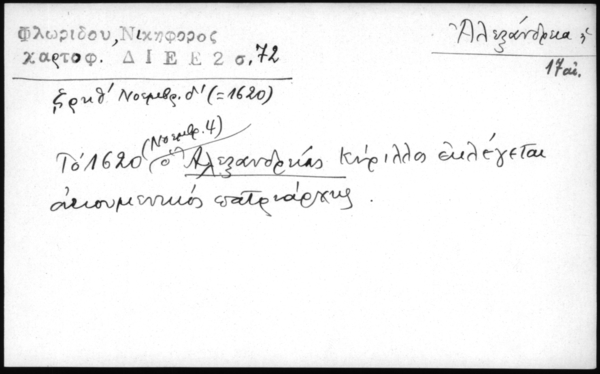 Φλωρίδου, Νικηφορος
χαρτοφ. ΔΙΕΕ2 σ. 72
Ἀλεξάνδρεια
17 αἰ.
͵ζρκθ' Νοεμβρ. δ' (=1620)
(Νοεμβρ. 4)
Τό 1620 ὁ Ἀλεξανδρείας Κύριλλος ἐκλέγεται
οἰκουμενικός πατριάρχης.